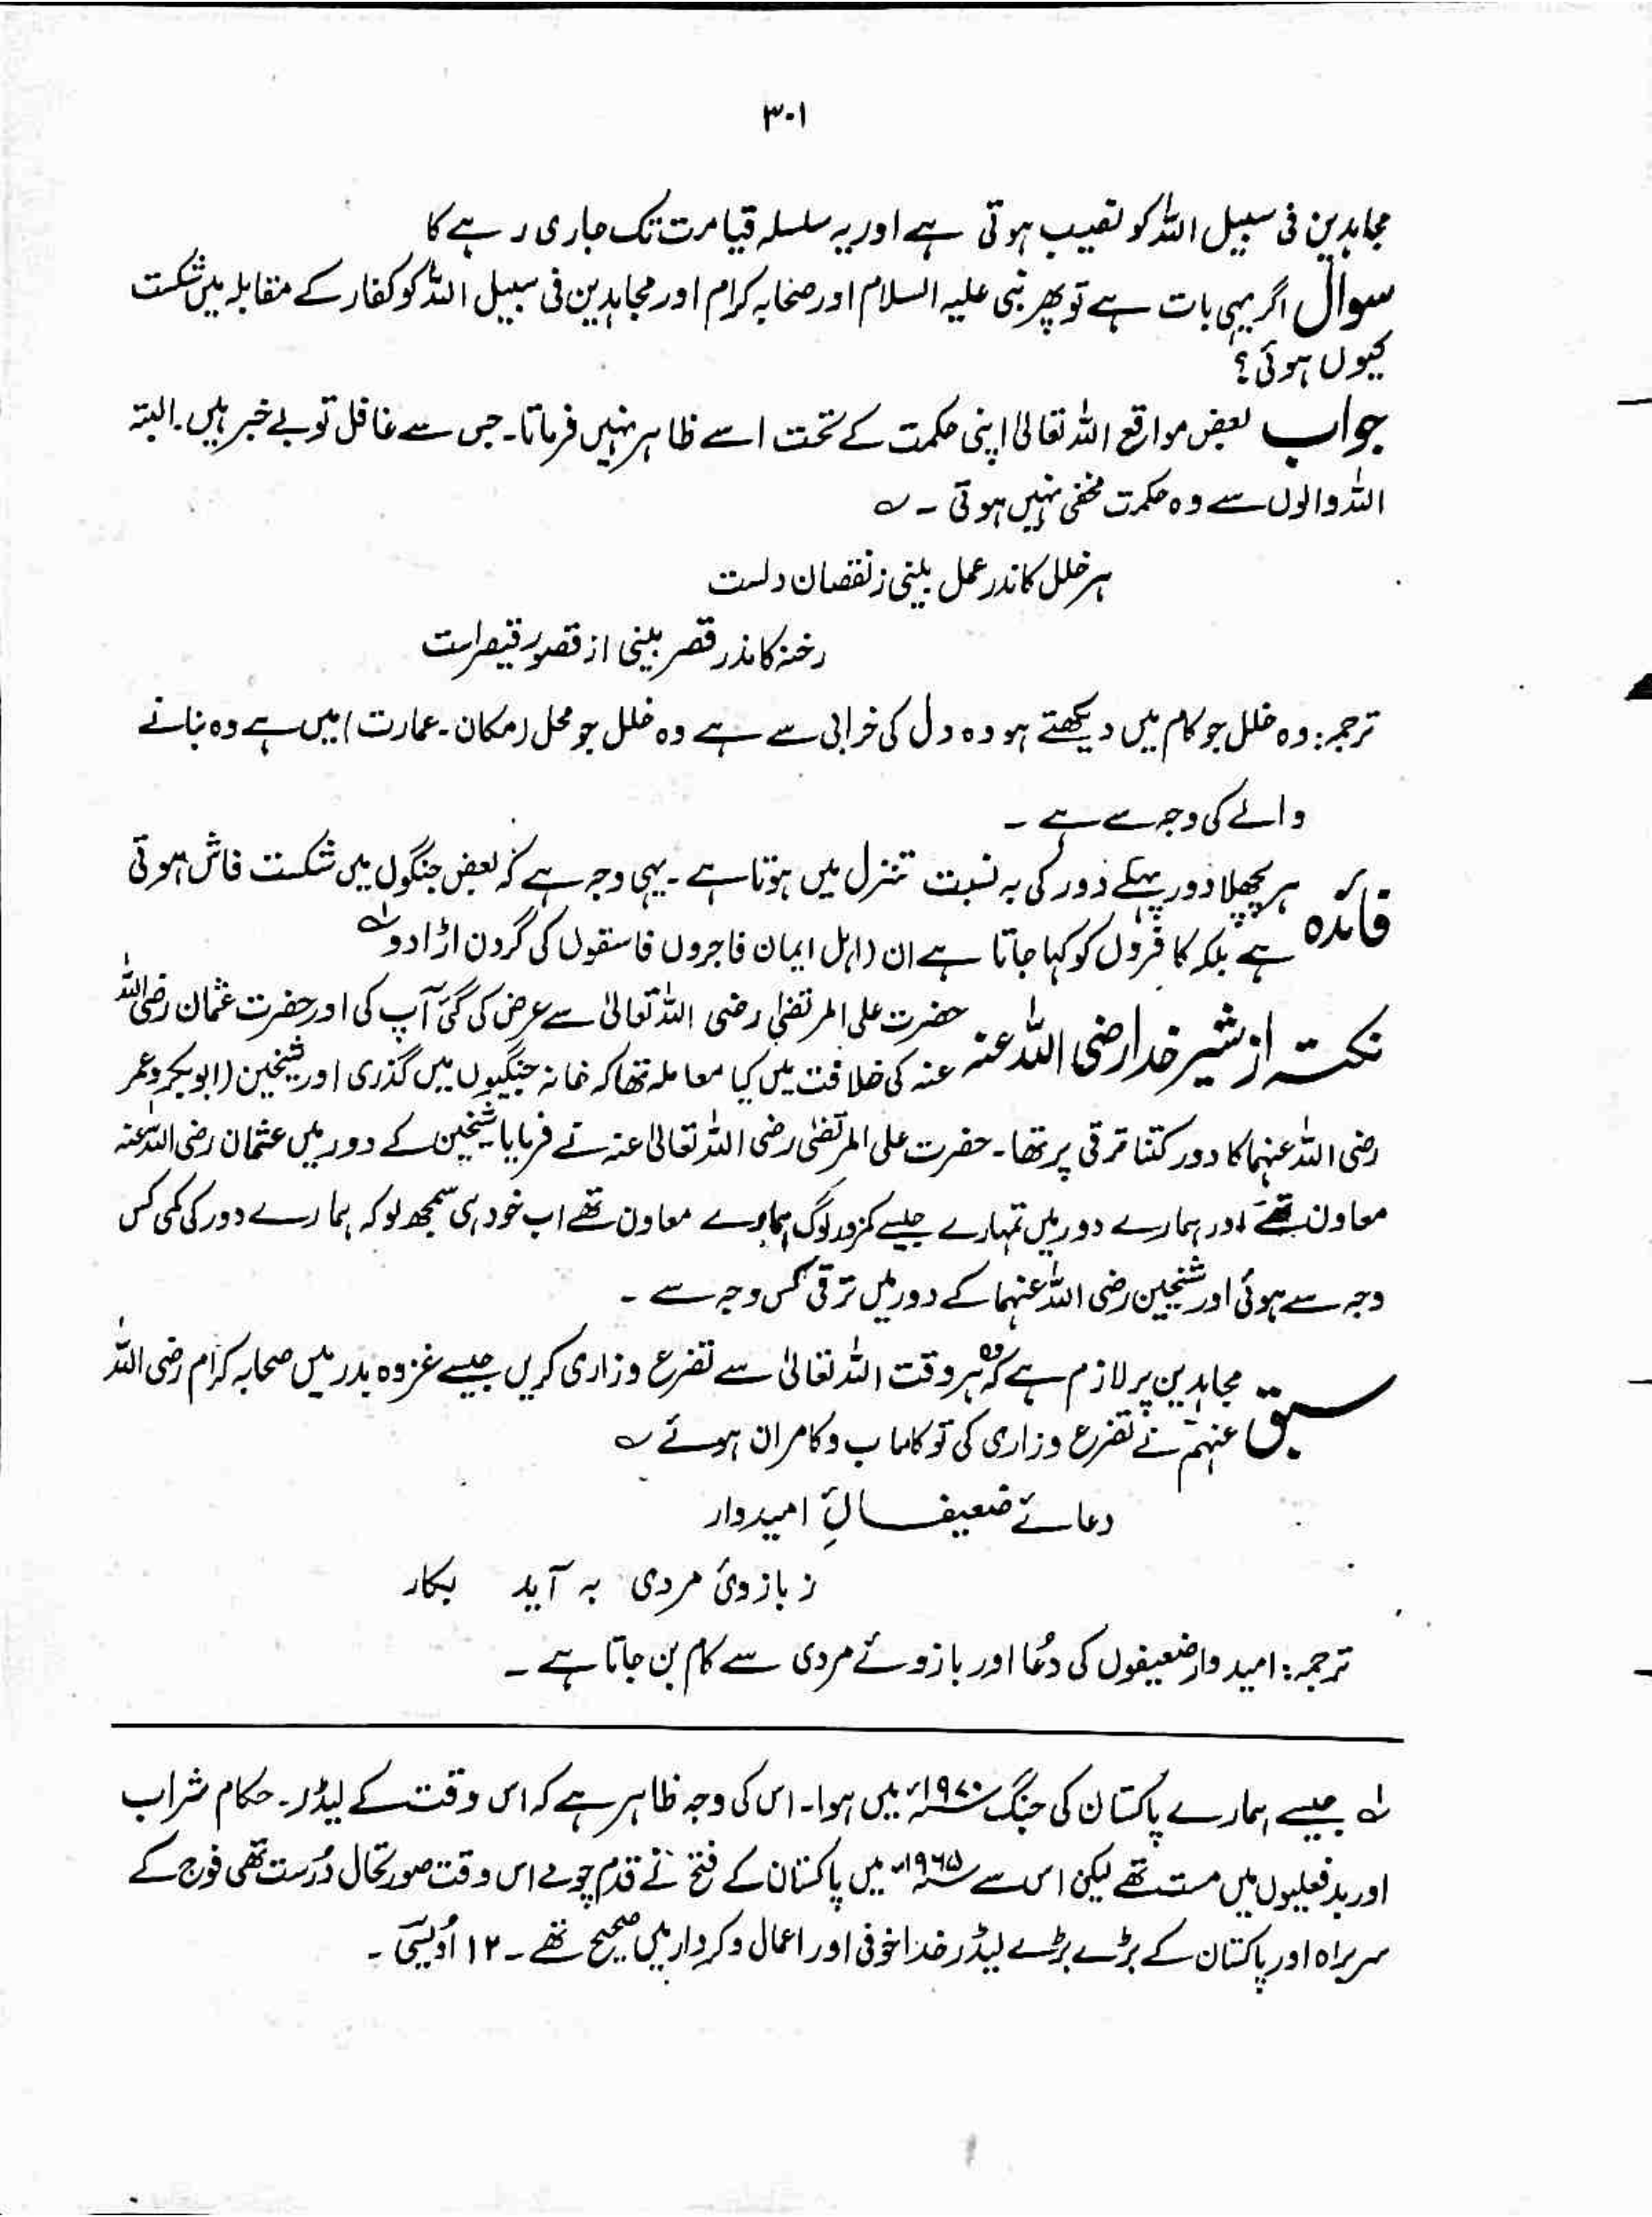 ۳۰۱
مجاہدین فی سبیل اللہ کو نصیب ہوتی ہے اور یہ سلسلہ قیامت تک جاری رہے گا
سوال اگر یہی بات ہے تو پھر نبی علیہ السلام اور صحابہ کرام اور مجاہدین فی سبیل اللہ کو کفار کے مقابلہ میں شکست
کیوں ہوئی؟
جواب بعض مواقع اللہ تعالیٰ اپنی حکمت کے تحت اسے ظاہر نہیں فرماتا۔ جس سے غافل تو بے خبر ہیں۔ البتہ
اللہ والوں سے وہ حکمت مخفی نہیں ہوتی ۔ ؎
ہر خلل کاندر عمل بینی ز نقصان دلست
رخنہ کاندر قصر بینی از قصور قیصر است
ترجمہ: وہ خلل جو کام میں دیکھتے ہو وہ دل کی خرابی سے ہے وہ خلل جو محل (مکان۔ عمارت) میں ہے وہ بنانے
والے کی وجہ سے ہے ۔
فائدہ ہر پچھلا دور پہلے دور کی بہ نسبت تنزل میں ہوتا ہے ۔ یہی وجہ ہے کہ بعض جنگوں میں شکست فاش ہوتی
ہے بلکہ کافروں کو کہا جاتا ہے ان (اہل ایمان فاجروں فاسقوں کی گردن اڑا دو ؂۱
نکتہ از شیر خدا رضی اللہ عنہ حضرت علی المرتضیٰ رضی اللہ تعالیٰ سے عرض کی گئی آپ کی اور حضرت عثمان رضی اللہ
عنہ کی خلافت میں کیا معاملہ تھا کہ خانہ جنگیوں میں گذری اور شیخین (ابوبکر و عمر
رضی اللہ عنہما کا دور کتنا ترقی پر تھا ۔ حضرت علی المرتضیٰ رضی اللہ تعالیٰ عنہ نے فرمایا شیخین کے دور میں عثمان رضی اللہ عنہ
معاون تھے اور ہمارے دور میں تمہارے جیسے کمزور لوگ ہمارے معاون تھے اب خود ہی سمجھ لو کہ ہمارے دور کی کمی کس
وجہ سے ہوئی اور شیخین رضی اللہ عنہما کے دور میں ترقی کس وجہ سے ۔
سبق مجاہدین پر لازم ہے کہ وہ ہر وقت اللہ تعالیٰ سے تضرع وزاری کریں جیسے غزوہ بدر میں صحابہ کرام رضی اللہ
عنہم نے تضرع وزاری کی تو کامیاب و کامران ہوئے ؎
دعائے ضعیفانِ امیدوار
ز بازوئ مردی بہ آید بکار
ترجمہ: امیدوار ضعیفوں کی دُعا اور بازوئے مردی سے کام بن جاتا ہے ۔
؂۱ جیسے ہمارے پاکستان کی جنگ ۱۹۷۰ء میں ہوا۔ اس کی وجہ ظاہر ہے کہ اس وقت کے لیڈر۔ حکام شراب
اور بدفعلیوں میں مست تھے لیکن اس سے ۱۹۶۵ء میں پاکستان کے فتح نے قدم چومے اس وقت صورتحال دُرست تھی فوج کے
سربراہ اور پاکستان کے بڑے بڑے لیڈر خدا خوفی اور اعمال و کردار میں صحیح تھے ۔ ۱۲ اُویسی ۔